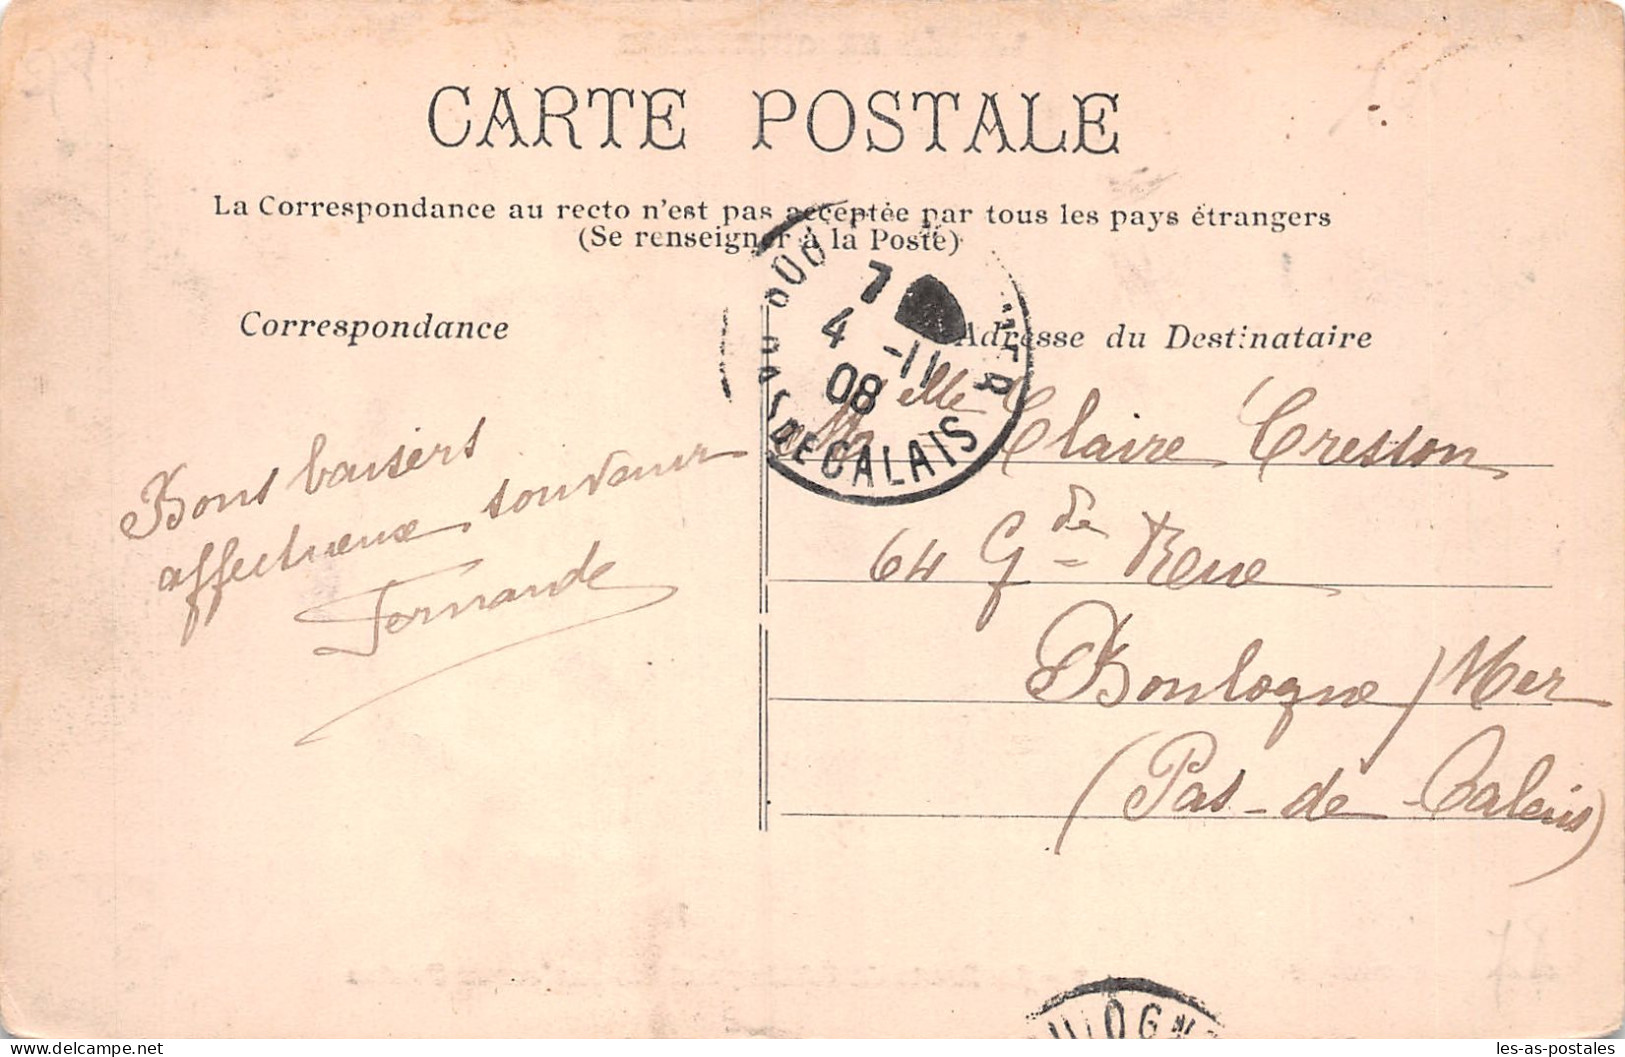 CARTE POSTALE
La Correspondance au recto n'est pas acceptée par tous les pays étrangers
(Se renseigner à la Poste)
Correspondance
Adresse du Destinataire
7
4 -11
08
PAS DE CALAIS
Bons baisers
affectueux souvenir
Fernande
Melle Claire Cresson
64 Gde Rue
Boulogne / Mer
(Pas-de-Calais)
les-as-postales